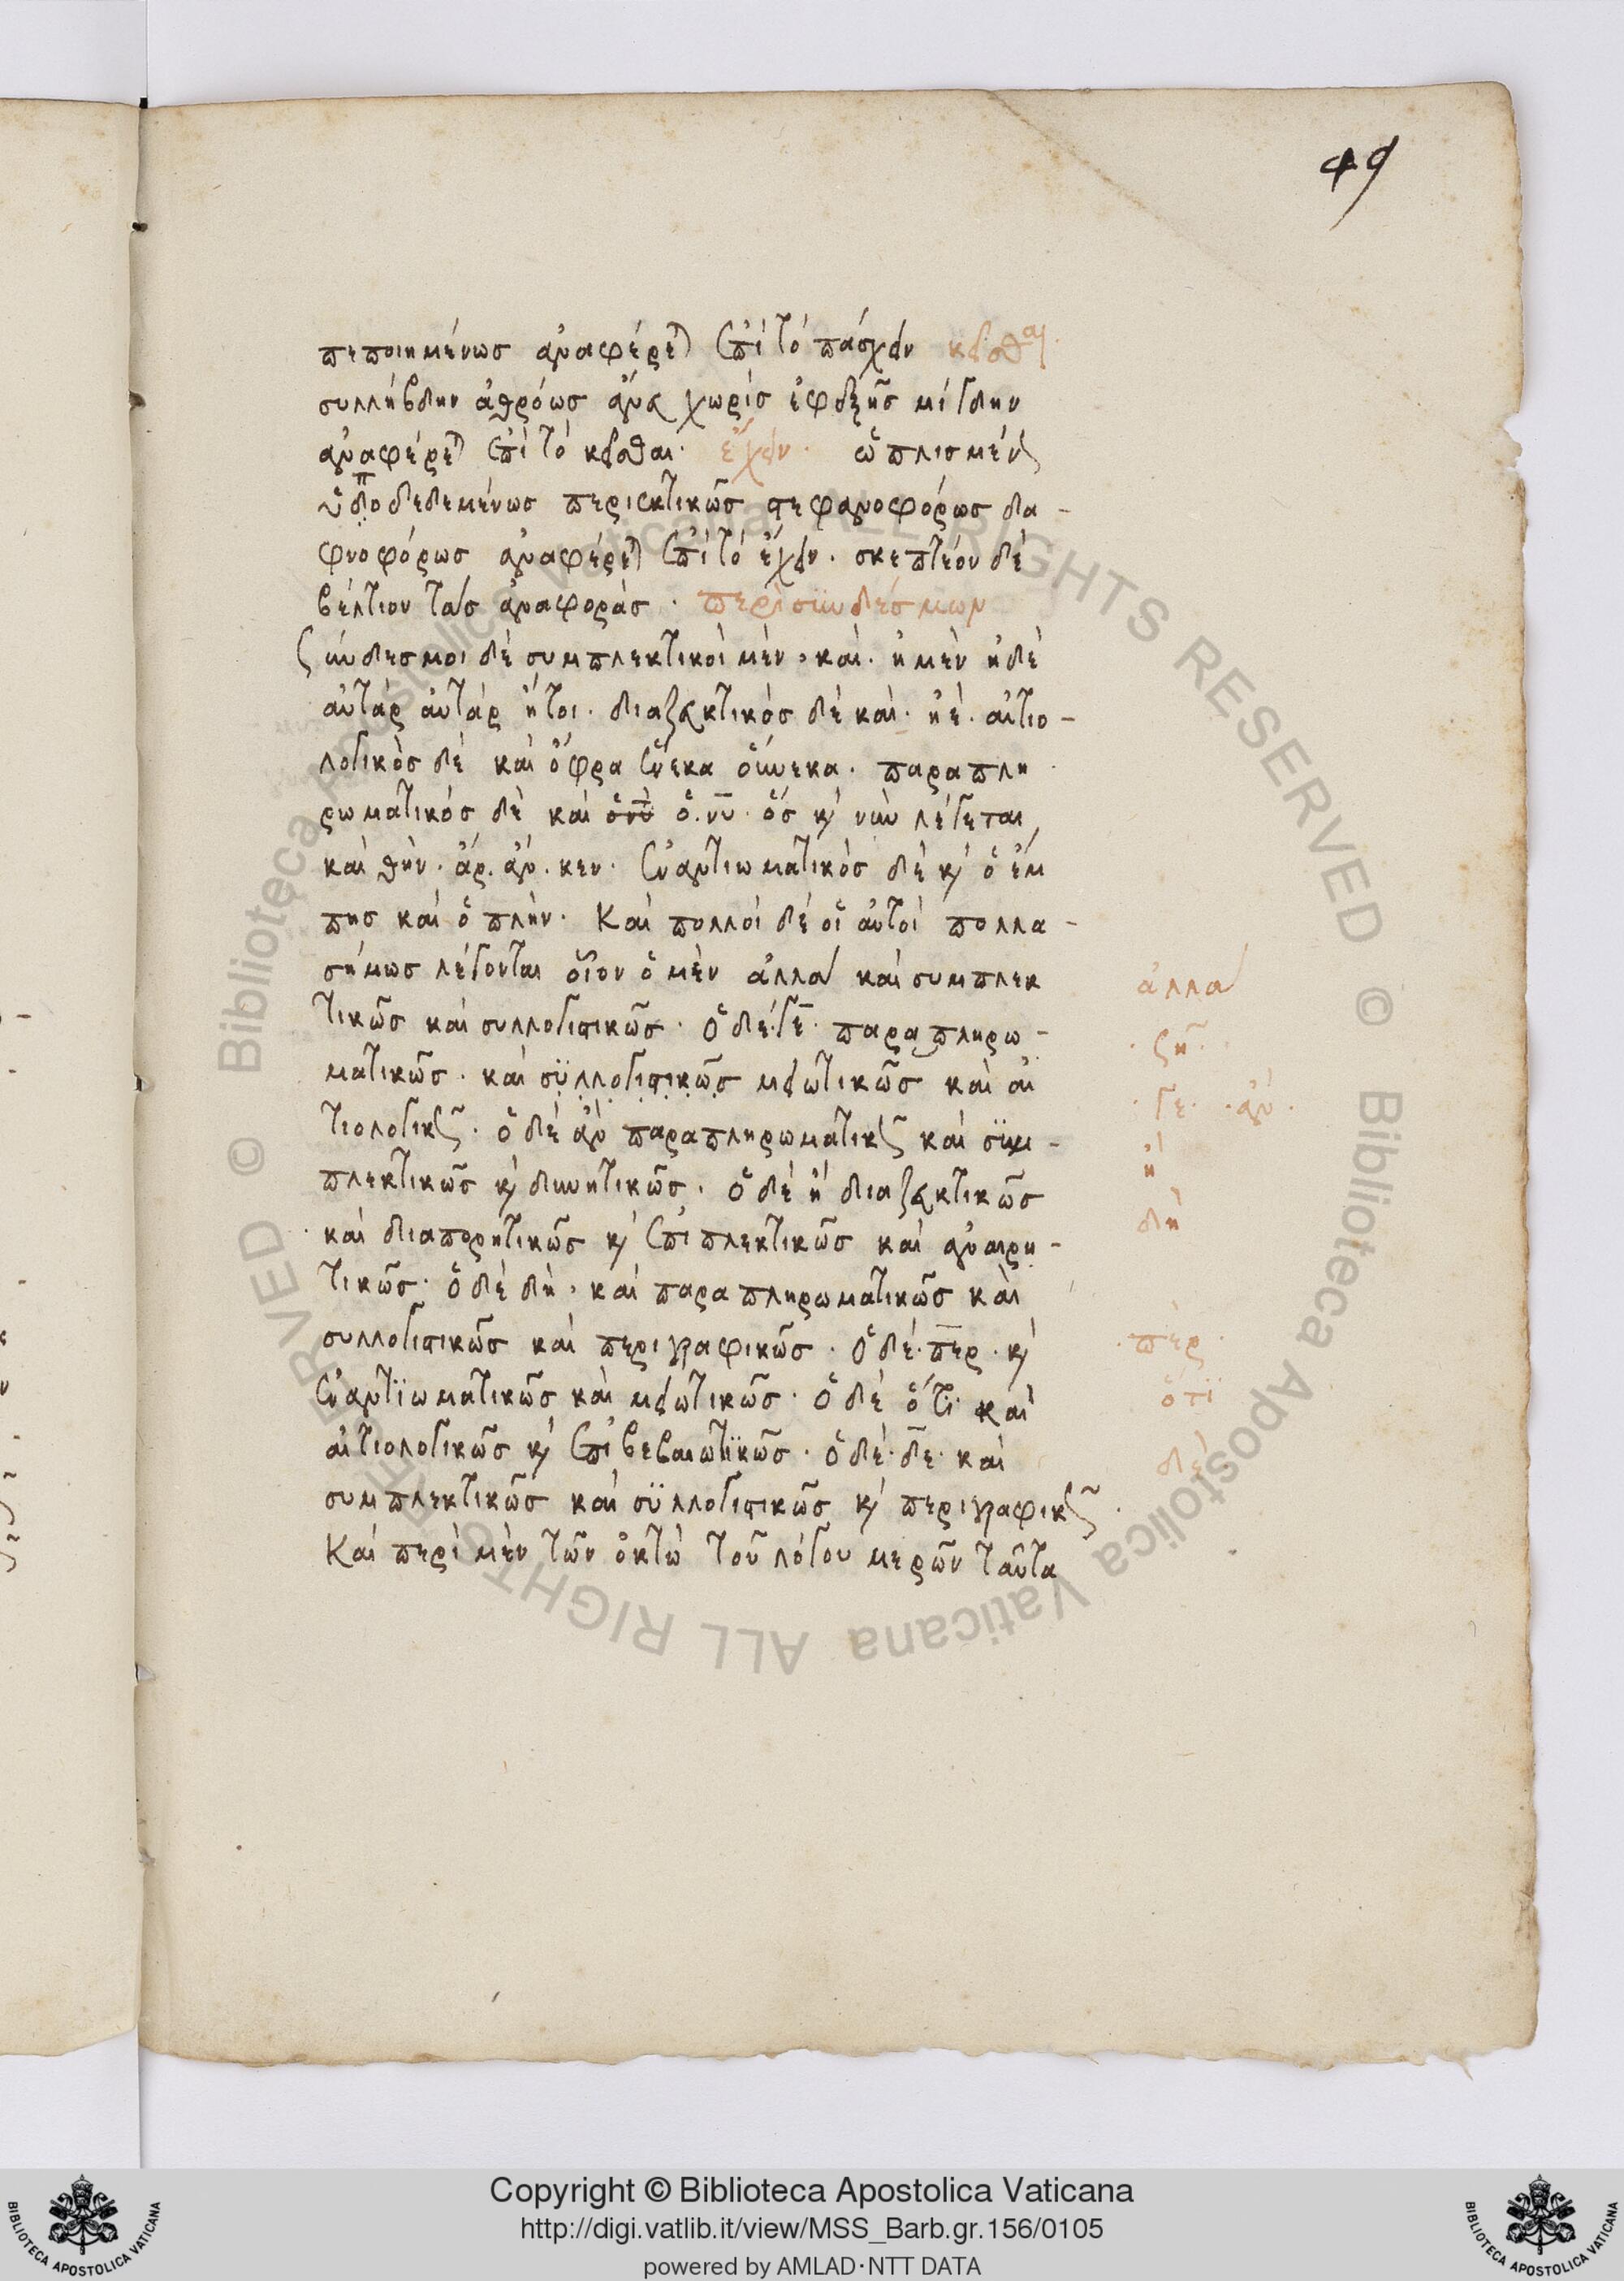 49
πεποιημένως ἀναφέρετ(αι) ἐπὶ τὸ πάσχειν κεῖσθαι·
συλλήβδην ἀθρόως ἄνευ χωρὶς ἐφεξῆς μίγδην
ἀναφέρετ(αι) ἐπὶ τὸ κεῖσθαι· ἔχειν· ὡπλισμένως
ὑποδεδεμένως περιεκτικῶς στεφανοφόρως δα-
φνοφόρως ἀναφέρετ(αι) ἐπὶ τὸ ἔχειν· σκεπτέον δὲ
βέλτιον τὰς ἀναφοράς· περὶ συνδέσμων
Σύνδεσμοι δὲ συμπλεκτικοὶ μέν· καὶ· ἠμὲν ἠδὲ
αὐτὰρ ἀυτὰρ ἤτοι· διαζευκτικὸς δὲ καὶ· ἠέ· αἰτιο-
λογικὸς δὲ καὶ ὄφρα ἕνεκα οὕνεκα· παραπλη
ρωματικὸς δὲ καὶ ὁ νυ· ὃς κ(αὶ) νὺν λέγεται
καὶ θήν· ἄρ· ἄν· κεν· ἐναντιωματικὸς δὲ κ(αὶ) ὁ ἔμ
πης καὶ ὁ πλήν· Καὶ πολλοὶ δὲ οἱ αὐτοὶ πολλα-
σήμως λέγονται οἷον ὁ μὲν ἀλλὰ καὶ συμπλεκ
τικῶς καὶ συλλογιστικῶς· ὁ δέ· γε· παραπληρω-
ματικῶς· καὶ συλλογιστικῶς μειωτικῶς καὶ αἰ
τιολογικῶς· ὁ δὲ ἂν παραπληρωματικῶς καὶ συμ-
πλεκτικῶς κ(αὶ) δυνητικῶς· ὁ δὲ ἢ διαζευκτικῶς
καὶ διαπορητικῶς κ(αὶ) ἐπιπλεκτικῶς καὶ ἀναιρη-
τικῶς· ὁ δὲ δή· καὶ παραπληρωματικῶς καὶ
συλλογιστικῶς καὶ περιγραφικῶς· ὁ δέ· περ· κ(αὶ)
ἐναντιωματικῶς καὶ μειωτικῶς· ὁ δὲ ὅτι· καὶ
αἰτιολογικῶς κ(αὶ) ἐπιβεβαιωτικῶς· ὁ δέ· δε· καὶ
συμπλεκτικῶς καὶ συλλογιστικῶς κ(αὶ) περιγραφικῶς·
Καὶ περὶ μὲν τῶν ὀκτὼ τοῦ λόγου μερῶν ταῦτα
ἀλλὰ
ζη
γε· ἄν·
ἤ
δή
περ·
ὅτι
δέ
Copyright © Biblioteca Apostolica Vaticana
http://digi.vatlib.it/view/MSS_Barb.gr.156/0105
powered by AMLAD·NTT DATA
BIBLIOTECA APOSTOLICA VATICANA
BIBLIOTECA APOSTOLICA VATICANA
© Biblioteca Apostolica Vaticana ALL RIGHTS RESERVED © Biblioteca Apostolica Vaticana ALL RIGHTS RESERVED